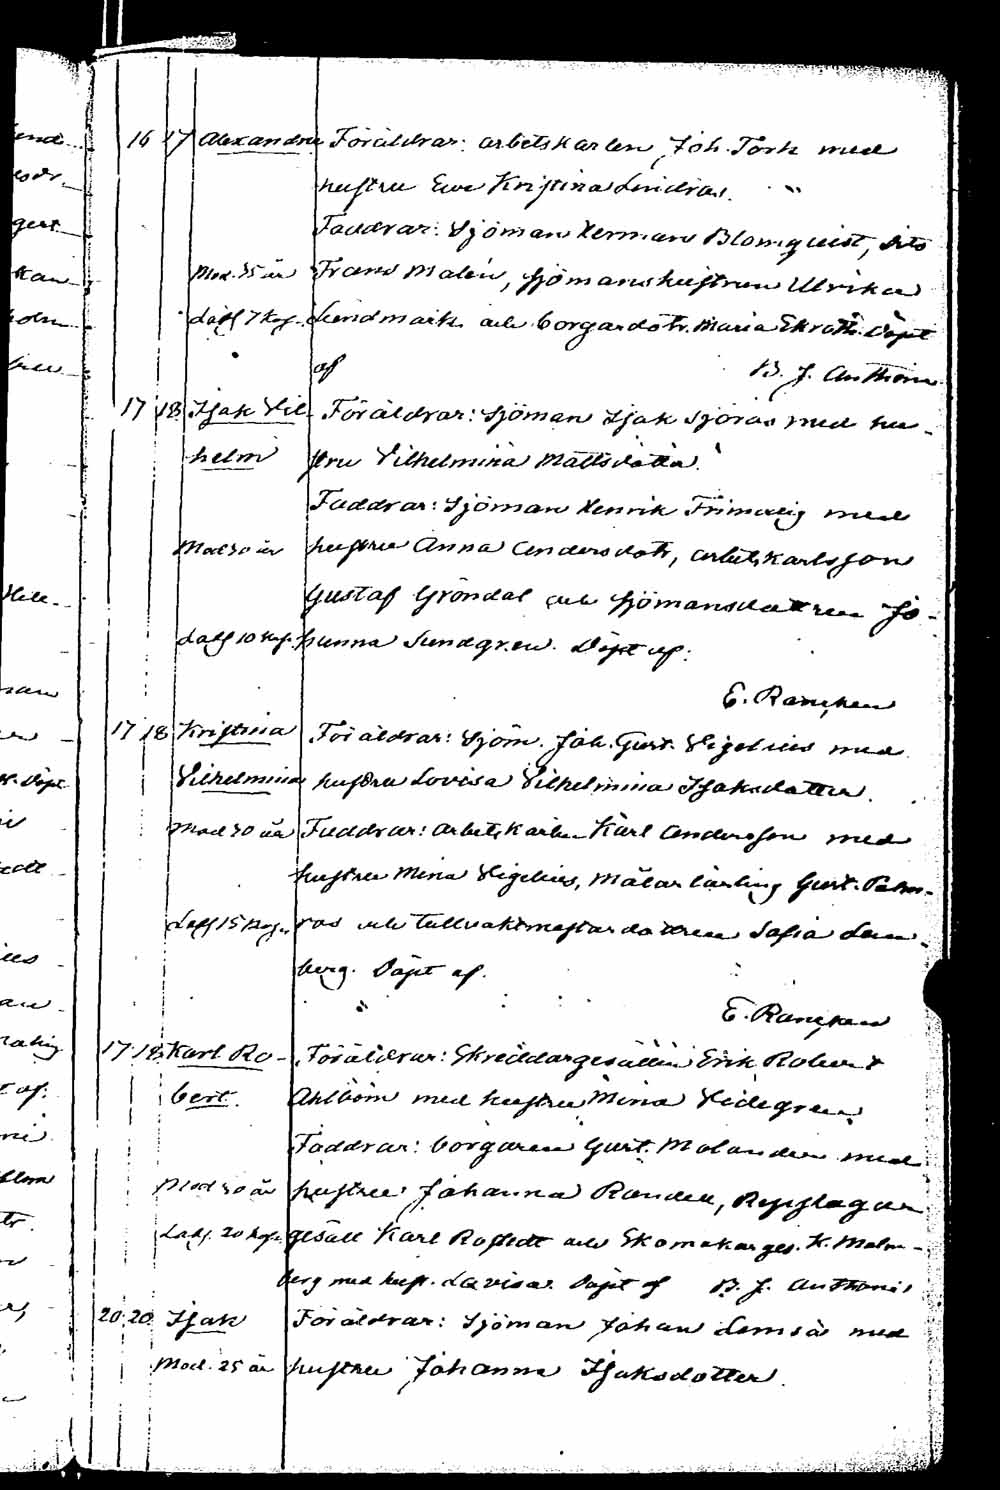 16 17 Alexandra Föräldrar: arbetskarlen Joh. Törk med
hustru Eva Kristina Lindroos.
Faddrar: Sjöman Herman Blomqvist, dito
Mod. 35 år Frans Malén, sjömanshustrun Ulrika
Lösg 7 kop. Lindmark och borgardotr. Maria Ekroth. Döpt
af B. J. Anthoni
17 18 Isak Vil- Föräldrar: Sjöman Isak Sjöroos med hu-
helm stru Vilhelmina Mattsdotter.
Faddrar: Sjöman Henrik Frimodig med
Mod 30 år hustru Anna Andersdotr, arbetskarlsson
Gustaf Gröndal och sjömansdottren Jo-
Lösg 10 kop. hanna Sundgren. Döpt af:
E. Rancken
17 18 Kristina Föräldrar: Sjöm. Joh. Gust. Vigelius med
Vilhelmina hustru Lovisa Vilhelmina Isaksdotter.
Mod 30 år Faddrar: arbetskarlen Karl Andersson med
hustru Mina Vigelius, målarlärling Gust. Palm-
Lösg 15 kop. ros och tullvaktmästardottren Sofia
berg. Döpt af.
E. Rancken
17 18 Karl Ro- Föräldrar: Skräddargesällen Erik Robert
bert. Ahlbom med hustru Mina Videgren.
Faddrar: borgaren Gust. Molander med
Mod 30 år hustru Johanna Randell, Repslagar
Lösg. 20 kop. gesäll Karl Rostedt och Skomakarges. K. Malm-
berg med hust. Lovisa. Döpt af B. J. Anthoni
20 20 Isak Föräldrar: Sjöman Johan Lemså med
Mod. 25 år hustru Johanna Isaksdotter.